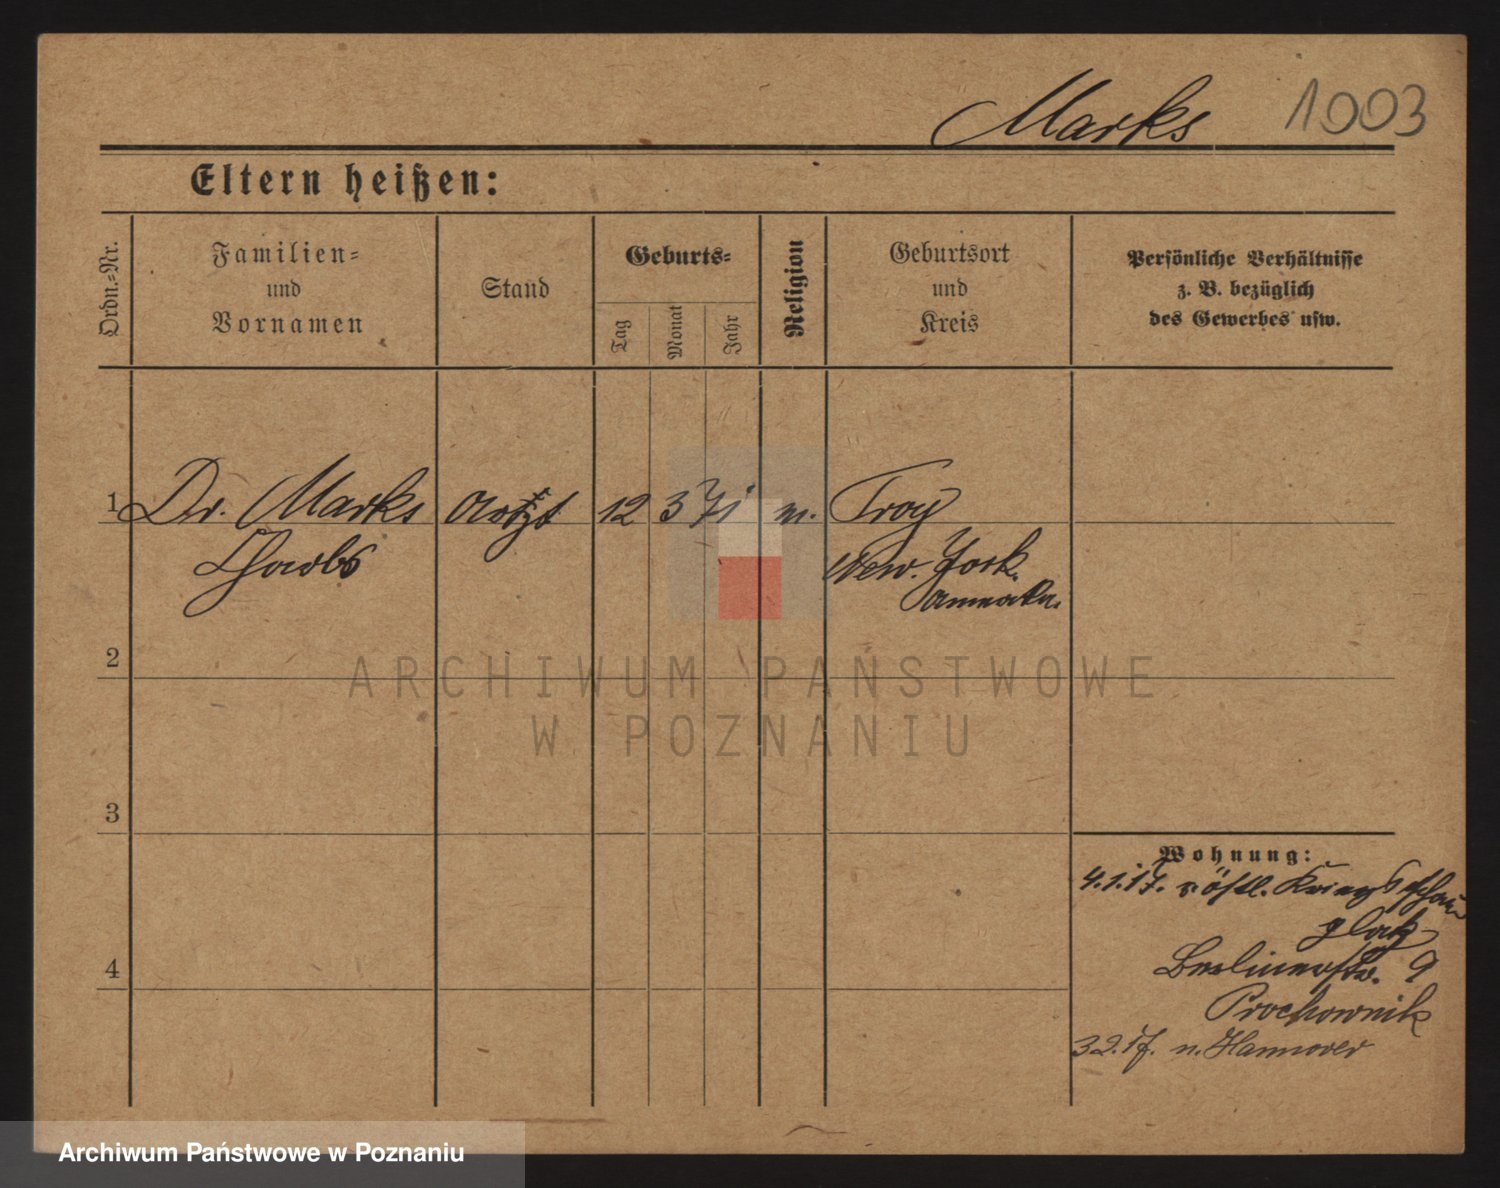 Marks 1003
Eltern heißen:
Ordn.=Nr.
Familien=
und
Vornamen
Stand
Geburts=
Tag
Monat
Jahr
Religion
Geburtsort
und
Kreis
Persönliche Verhältnisse
z. B. bezüglich
des Gewerbes usw.
1 Dr. Marks Arzt 12 3 71 m. Troy
Jacobs New. York.
Amerika.
2
3
4
Wohnung:
4.1.17. v. östl. Kriegsschau
platz
Berlinerstr. 9
Prochownik
3.2.17. n. Hannover
ARCHIWUM PAŃSTWOWE
W POZNANIU
Archiwum Państwowe w Poznaniu